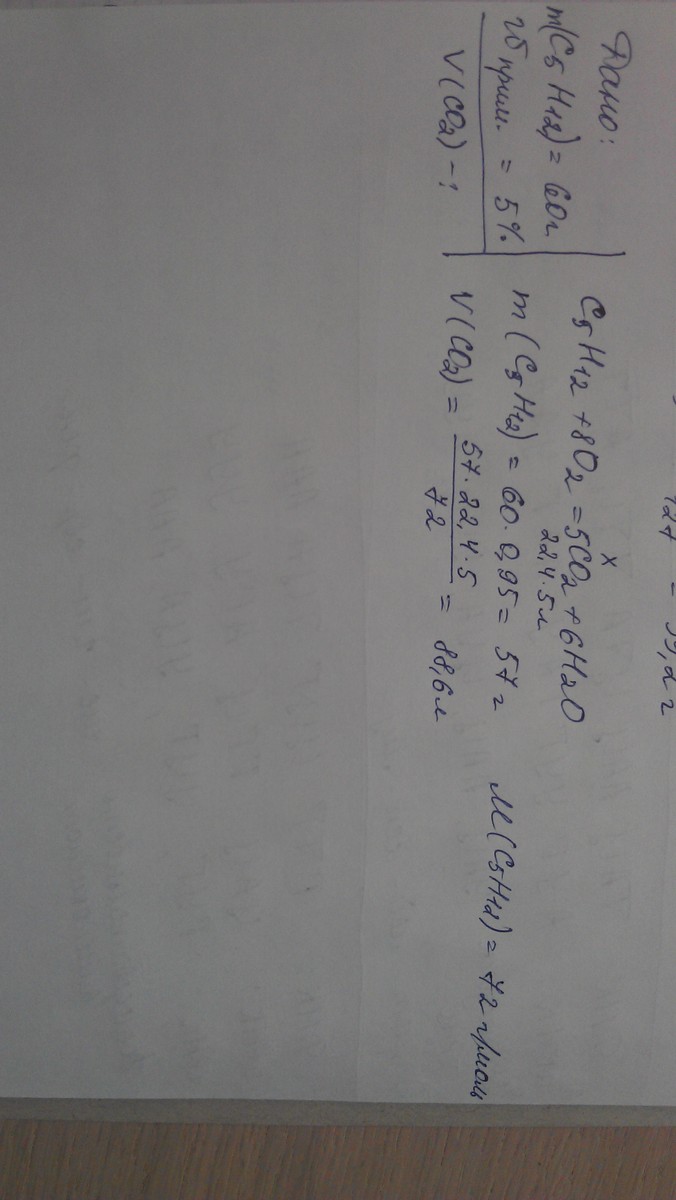 127 = 39,2 г
Дано:
m(C5H12) = 60г
w прим. = 5%
V(CO2) - ?
x
C5H12 + 8O2 = 5CO2 + 6H2O
22,4·5л
m(C5H12) = 60·0,95 = 57г
M(C5H12) = 72 г/моль
V(CO2) = 57·22,4·5 / 72 = 88,6л